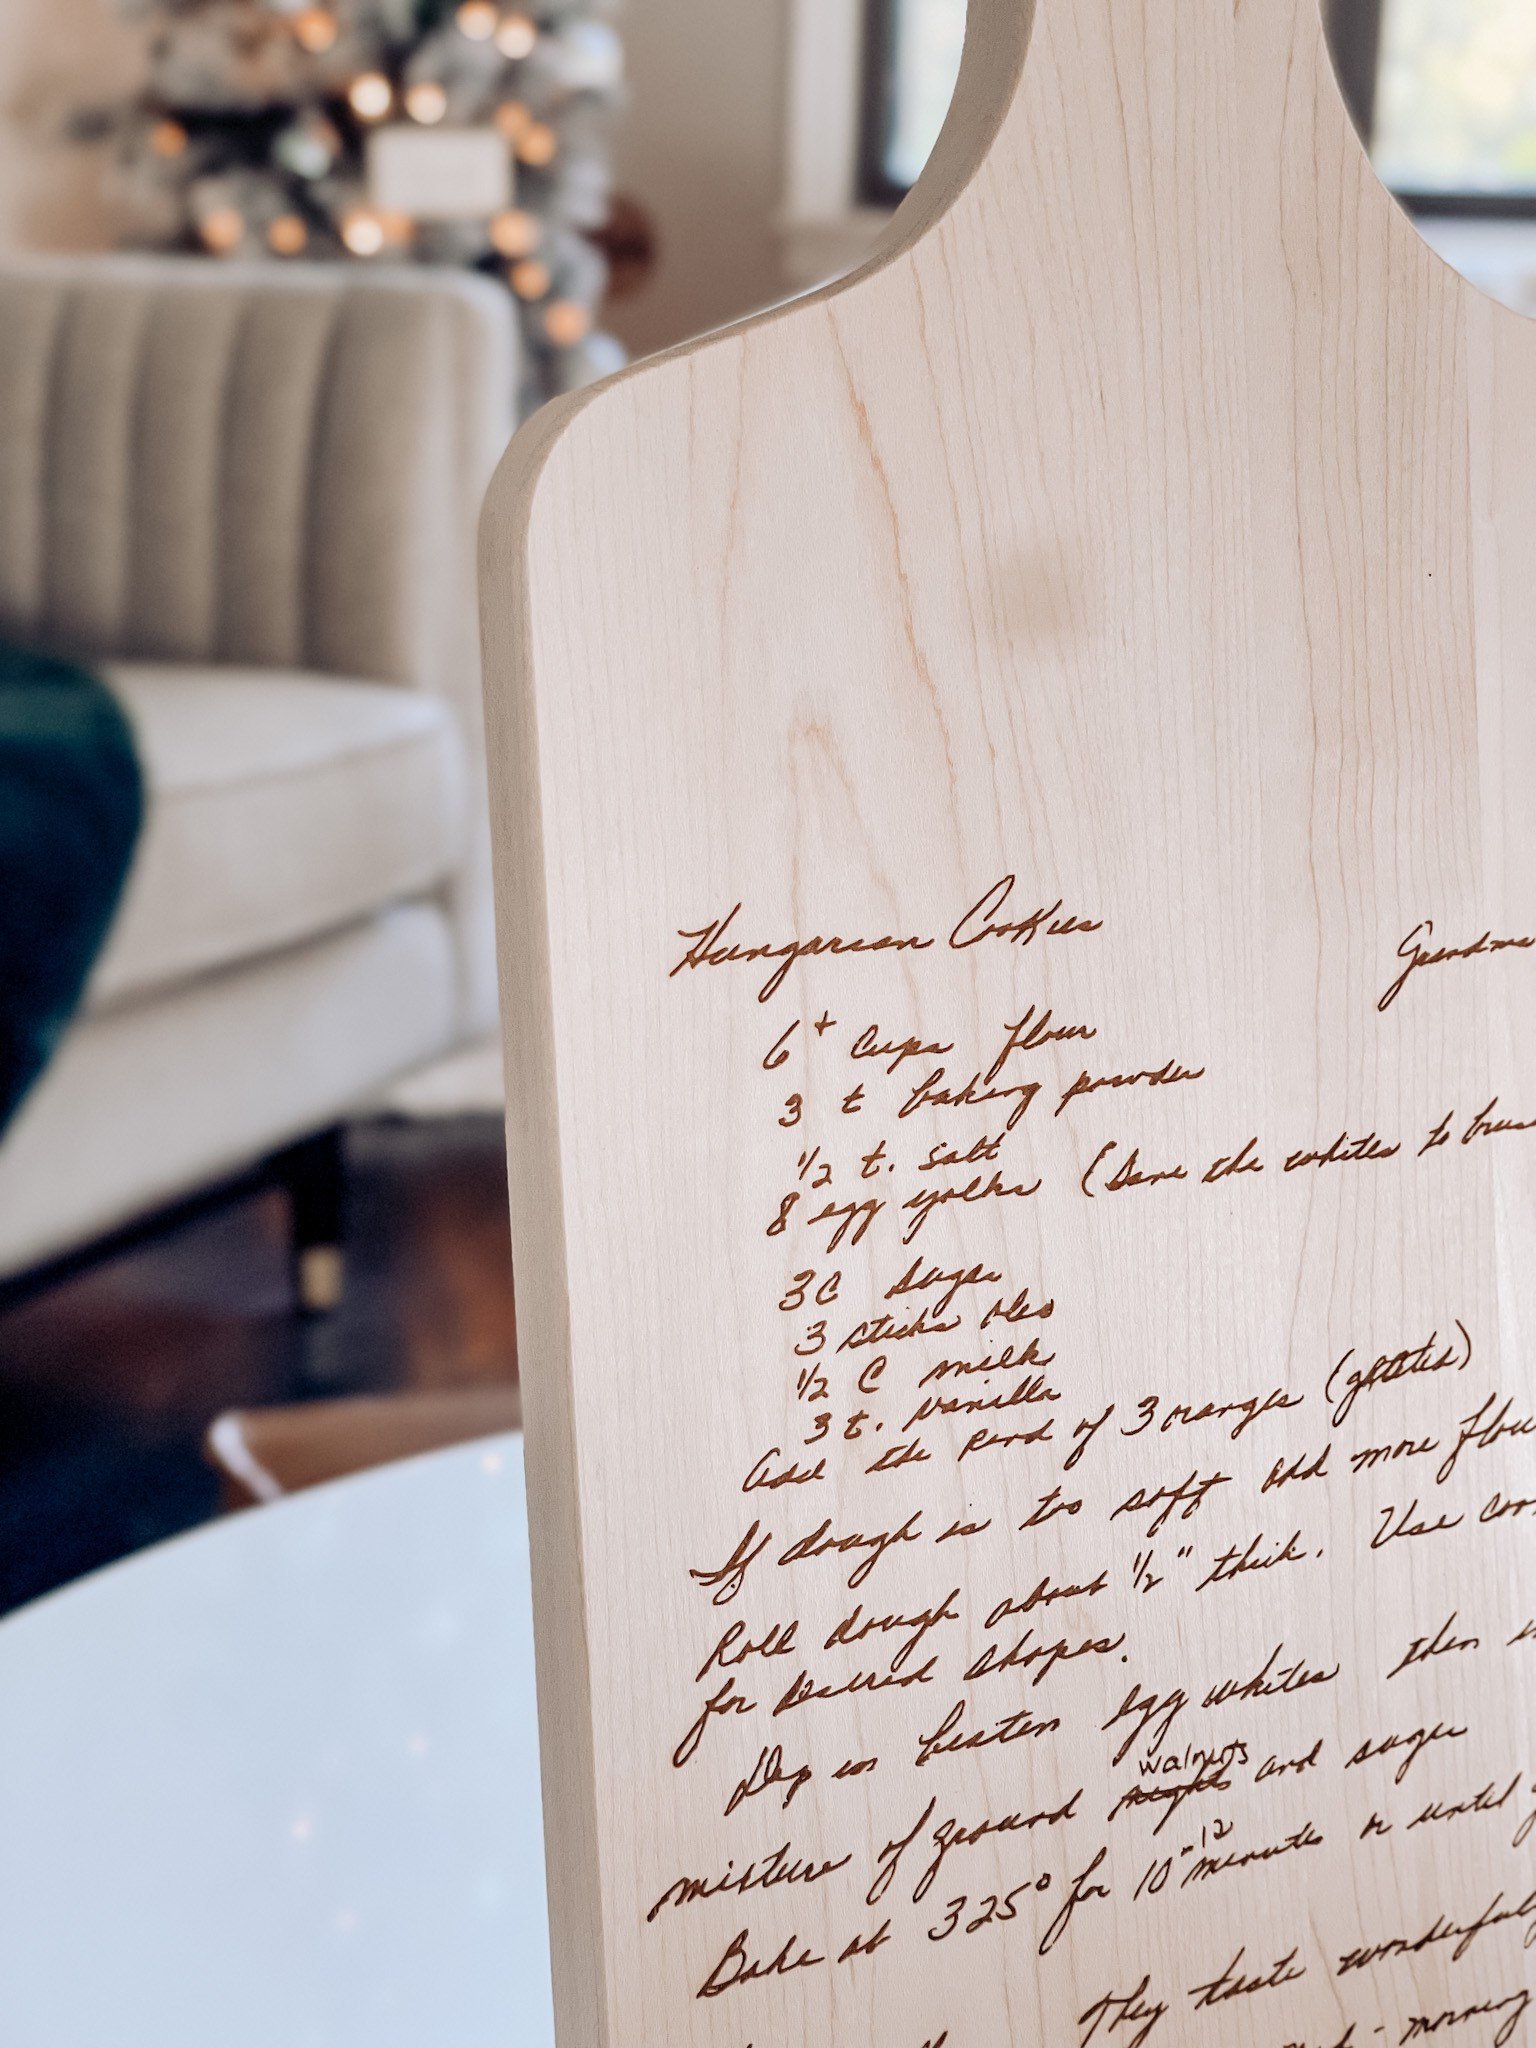 Hungarian Cookies Grandma
6+ cups flour
3 t baking powder
1/2 t. salt
8 egg yolks (Save the whites to brus
3 C sugar
3 sticks oleo
1/2 C milk
3 t. vanilla
add the rend of 3 oranges (grated)
If dough is too soft add more flou
Roll dough about 1/2" thick. Use coo
for desired shapes.
Dip in beaten egg whites then in
walnuts
mixture of ground nights and sugar
Bake at 325° for 10-12 minutes or until g
They taste wonderful
morning